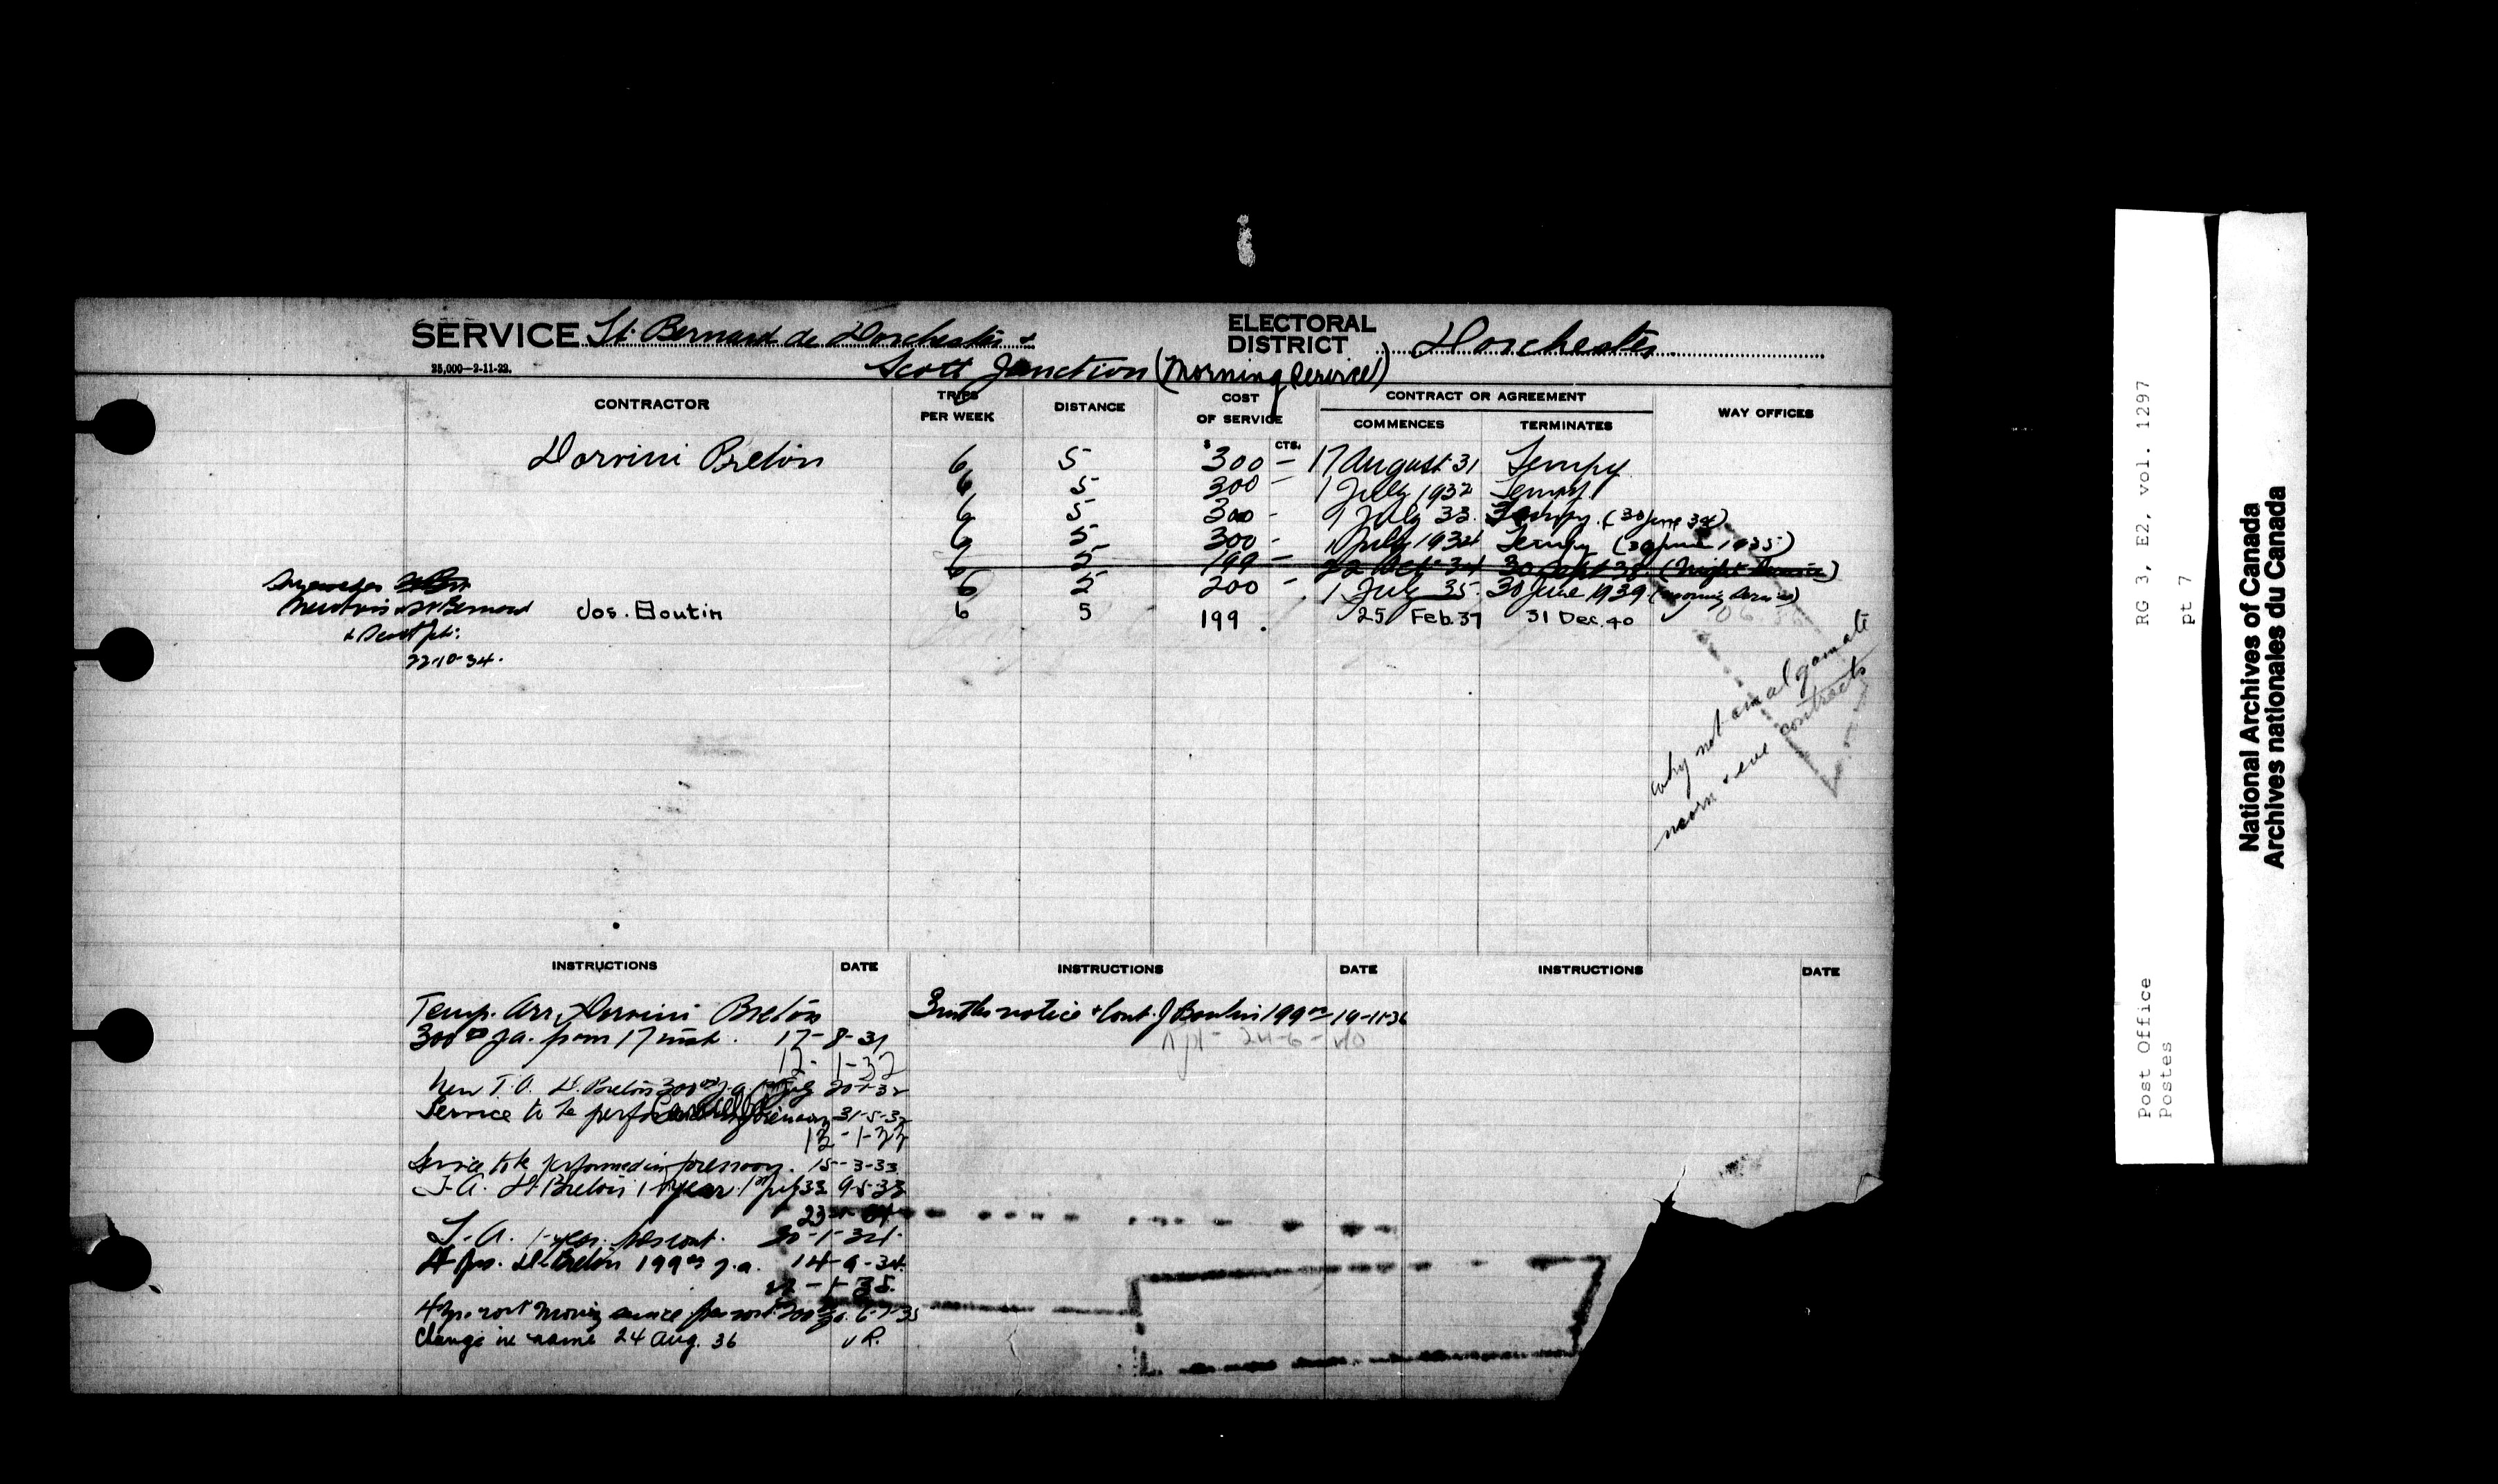 SERVICE St. Bernard de Dorchester &
Scott Junction (Morning Service)
ELECTORAL DISTRICT Dorchester
25,000—2-11-22.
CONTRACTOR TRIPS PER WEEK DISTANCE COST OF SERVICE CONTRACT OR AGREEMENT WAY OFFICES
COMMENCES TERMINATES
$ CTS.
Dorvini Breton 6 5 300 — 17 August 31 Tempy
6 5 300 — 1 July 1932 Tempy
6 5 300 - July 33. Tempy. (30 June 34)
6 5 300 - 1 July 1934 Tempy (30 June 1935)
6 5 199 — 22 Oct 34 30 Sept 38. (Night Service)
6 5 200 — 1 July 35. 30 June 1939 (Morning Service)
& St Bernard
& Scott Jct.
22-10-34.
Jos. Boutin 6 5 199 . 25 Feb. 37 31 Dec. 40
why not amalgamate
morn & eve contracts
INSTRUCTIONS DATE INSTRUCTIONS DATE INSTRUCTIONS DATE
Temp. Arr. Dorvini Breton
300 00 p.a. from 17 inst. 17-8-31
12-1-32
New T.A. D. Breton 300 00 p.a.
Service to be forenoon 31-5-32
12-1-33
Service to be performed in forenoon. 15-3-33
T.A. D. Breton 1 year 1st July 33 9-5-33
T.A. 1 year. 30-1-34
D. Breton 199 00 p.a. 14-9-34.
service
Change in name 24 Aug. 36
3 mths notice & Cont. J Boutin 199 00 19-11-36
24-6-40
RG 3, E2, vol. 1297
pt 7
Post Office
Postes
National Archives of Canada
Archives nationales du Canada